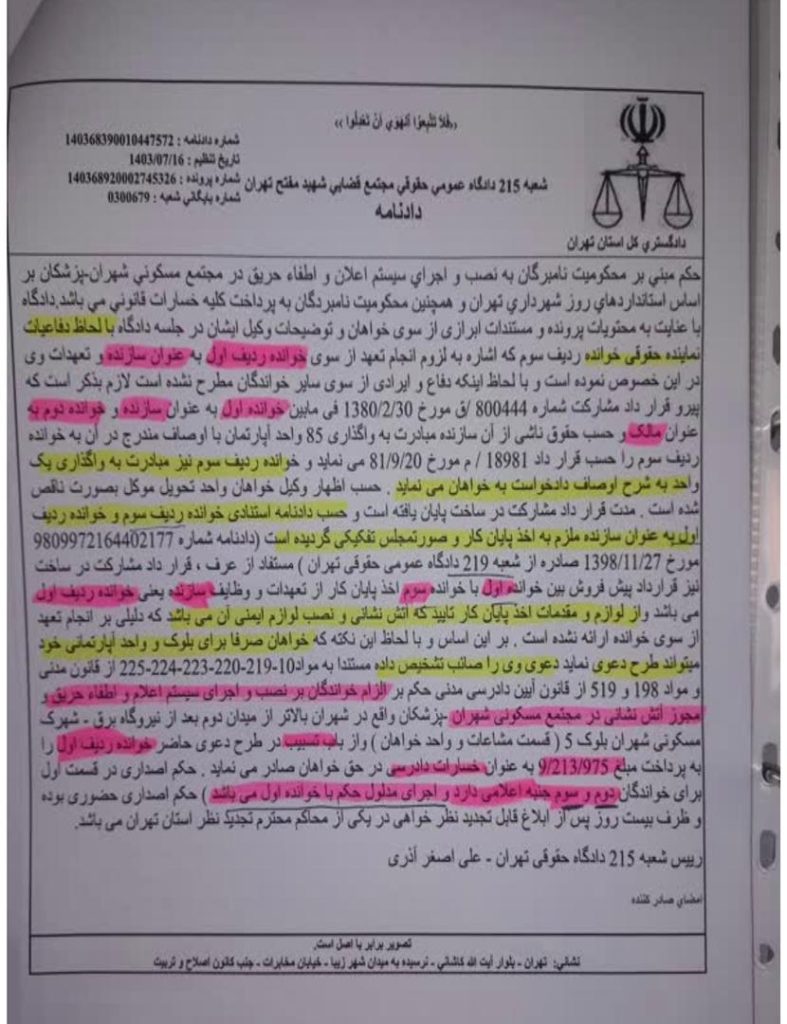 «فلا تتبعوا الهوي أن تعدلوا»
شماره دادنامه : 140368390010447572
تاریخ تنظیم : 1403/07/16
شماره پرونده : 140368920002745326
شماره بایگانی شعبه : 0300679
شعبه 215 دادگاه عمومي حقوقي مجتمع قضایي شهید مفتح تهران
دادنامه
دادگستري کل استان تهران
حکم مبني بر محکومیت نامبرگان به نصب و اجراي سیستم اعلان و اطفاء حریق در مجتمع مسکوني شهران-پزشکان بر
اساس استانداردهاي روز شهرداري تهران و همچنین محکومیت نامبردگان به پرداخت کلیه خسارات قانوني مي باشد.دادگاه
با عنایت به محتویات پرونده و مستندات ابرازی از سوی خواهان و توضیحات وکیل ایشان در جلسه دادگاه با لحاظ دفاعیات
نماینده حقوقی خوانده ردیف سوم که اشاره به لزوم انجام تعهد از سوی خوانده ردیف اول به عنوان سازنده و تعهدات وی
در این خصوص نموده است و با لحاظ اینکه دفاع و ایرادی از سوی سایر خواندگان مطرح نشده است لازم بذکر است که
پیرو قرار داد مشارکت شماره 800444 /ق مورخ 1380/2/30 فی مابین خوانده اول به عنوان سازنده و خوانده دوم به
عنوان مالک و حسب حقوق ناشی از آن سازنده مبادرت به واگذاری 85 واحد آپارتمان با اوصاف مندرج در آن به خوانده
ردیف سوم را حسب قرار داد 18981 / م مورخ 81/9/20 می نماید و خوانده ردیف سوم نیز مبادرت به واگذاری یک
واحد به شرح اوصاف دادخواست به خواهان می نماید . حسب اظهار وکیل خواهان واحد تحویل موکل بصورت ناقص
شده است . مدت قرار داد مشارکت در ساخت پایان یافته است و حسب دادنامه استنادی خوانده ردیف سوم و خوانده ردیف
اول به عنوان سازنده ملزم به اخذ پایان کار و صورتمجلس تفکیکی گردیده است (دادنامه شماره 9809972164402177
مورخ 1398/11/27 صادره از شعبه 219 دادگاه عمومی حقوقی تهران ) مستفاد از عرف ، قرار داد مشارکت در ساخت
نیز قرارداد پیش فروش بین خوانده اول با خوانده سوم اخذ پایان کار از تعهدات و وظایف سازنده یعنی خوانده ردیف اول
می باشد واز لوازم و مقدمات اخذ پایان کار تایید که آتش نشانی و نصب لوازم ایمنی آن می باشد که دلیلی بر انجام تعهد
از سوی خوانده ارائه نشده است . بر این اساس و با لحاظ این نکته که خواهان صرفا برای بلوک و واحد آپارتمانی خود
میتواند طرح دعوی نماید دعوی وی را صائب تشخیص داده مستندا به مواد10-219-220-223-224-225 از قانون مدنی
و مواد 198 و 519 از قانون آیین دادرسی مدنی حکم بر الزام خواندگان بر نصب و اجرای سیستم اعلام و اطفاء حریق و
مجوز آتش نشانی در مجتمع مسکونی شهران -پزشکان واقع در شهران بالاتر از میدان دوم بعد از نیروگاه برق - شهرک
مسکونی شهران بلوک 5 ( قسمت مشاعات و واحد خواهان ) واز باب تسبیب در طرح دعوی حاضر خوانده ردیف اول را
به پرداخت مبلغ 9/213/975 به عنوان خسارات دادرسی در حق خواهان صادر می نماید . حکم اصداری در قسمت اول
برای خواندگان دوم و سوم جنبه اعلامی دارد و اجرای مدلول حکم با خوانده اول می باشد ) حکم اصداری حضوری بوده
و ظرف بیست روز پس از ابلاغ قابل تجدید نظر خواهی در یکی از محاکم محترم تجدید نظر استان تهران می باشد.
رییس شعبه 215 دادگاه حقوقی تهران - علی اصغر آذری
امضاي صادر کننده
تصویر برابر با اصل است.
نشاني: تهران - بلوار آیت الله کاشاني - نرسیده به میدان شهر زیبا - خیابان مخابرات - جنب کانون اصلاح و تربیت